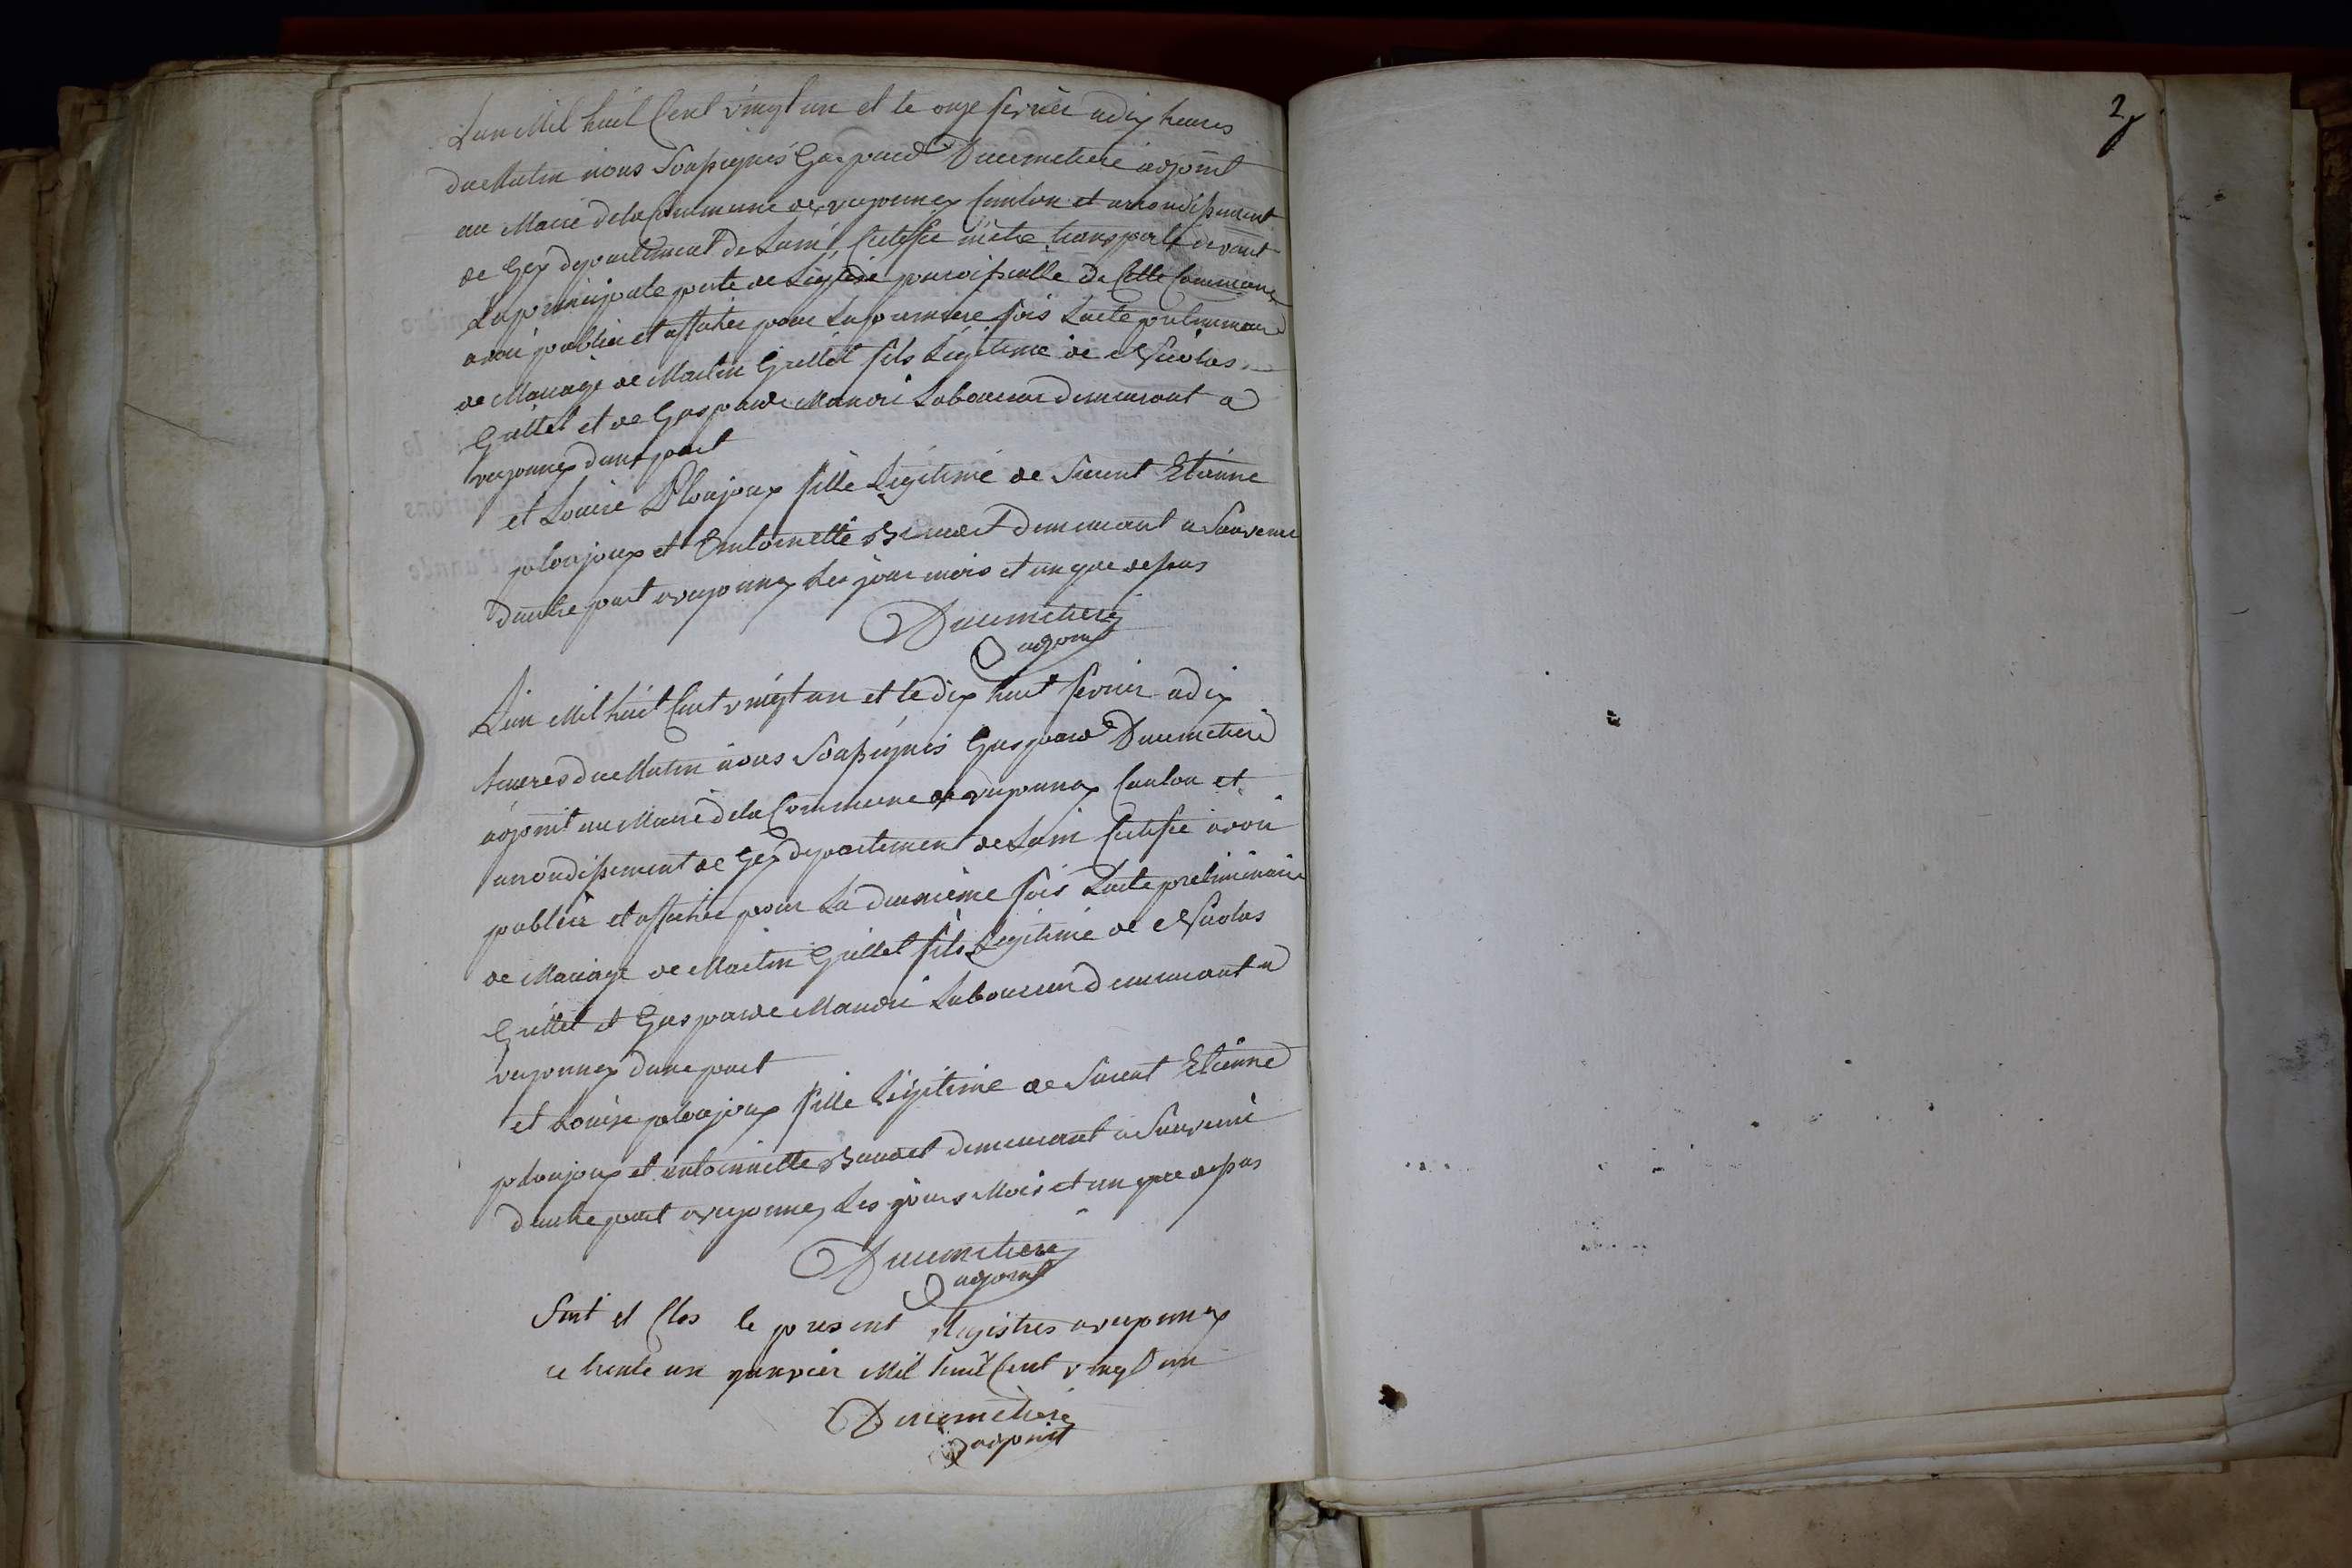 Lan Mil huit Cent vingt un et le onze fevrier a dix heures
du Matin nous Soussignés Gaspard Ducimetiere adjoint
au Maire de la Commune de vezonnex Canton et arrondissement
de Gex departement de Lain, Certifie mètre transporté devant
La principale porte de Léglise paroissialle de Cette Commune
avoir publier et afficher pour La premiere fois Lacte preliminaire
de Mariage de Martin Grillet fils Légitime de Nicolas
Grillet et de Gasparde Mandri Laboureur demeurant a
vezonnex dune part
et Louise Plonjoux fille Légitime de Laurent Etienne
plonjoux et Entoinette demeurant a Sauverni
dautre part a vezonnex Les jour mois et an que dessus
Ducimetiere
adjoint
Lan Mil huit Cent vingt un et le dix huit fevrier a dix
heures du Matin nous Soussignés Gaspard Ducimetiere
adjoint au Maire de la Commune de vezonnex Canton et
arrondissement de Gex departement de Lain Certifie avoir
publier et afficher pour La deuxieme fois Lacte preliminaire
de Mariage de Martin Grillet fils Légitime de Nicolas
Grillet et Gasparde Mandri Laboureur demeurant a
vezonnex dune part
et Louise plonjoux fille Légitime de Laurent Etienne
plonjoux et antoinnette demeurant a Sauverni
dautre part a vezonnex Les jours Mois et an que dessus
Ducimetiere
adjoint
et Clos le present Registres a vezonnex
ce trente un janvier Mil huit Cent vingt un
Ducimetiere
adjoint
2